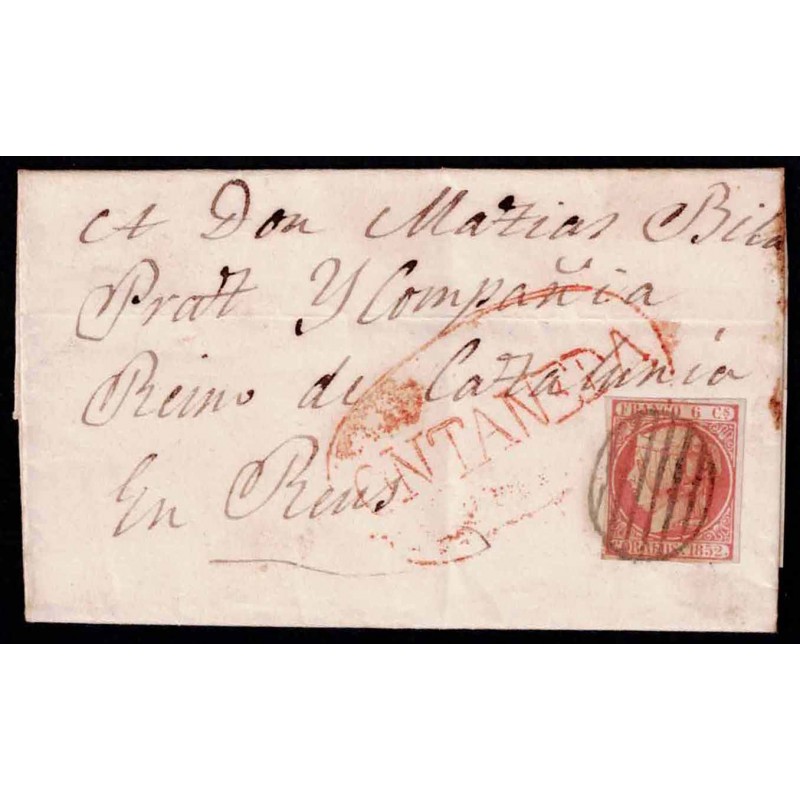 A Don Matias Bila
Pratt Y Compañia
Reino de Cattalunia
En Reus
FRANCO 6 CS
1852.